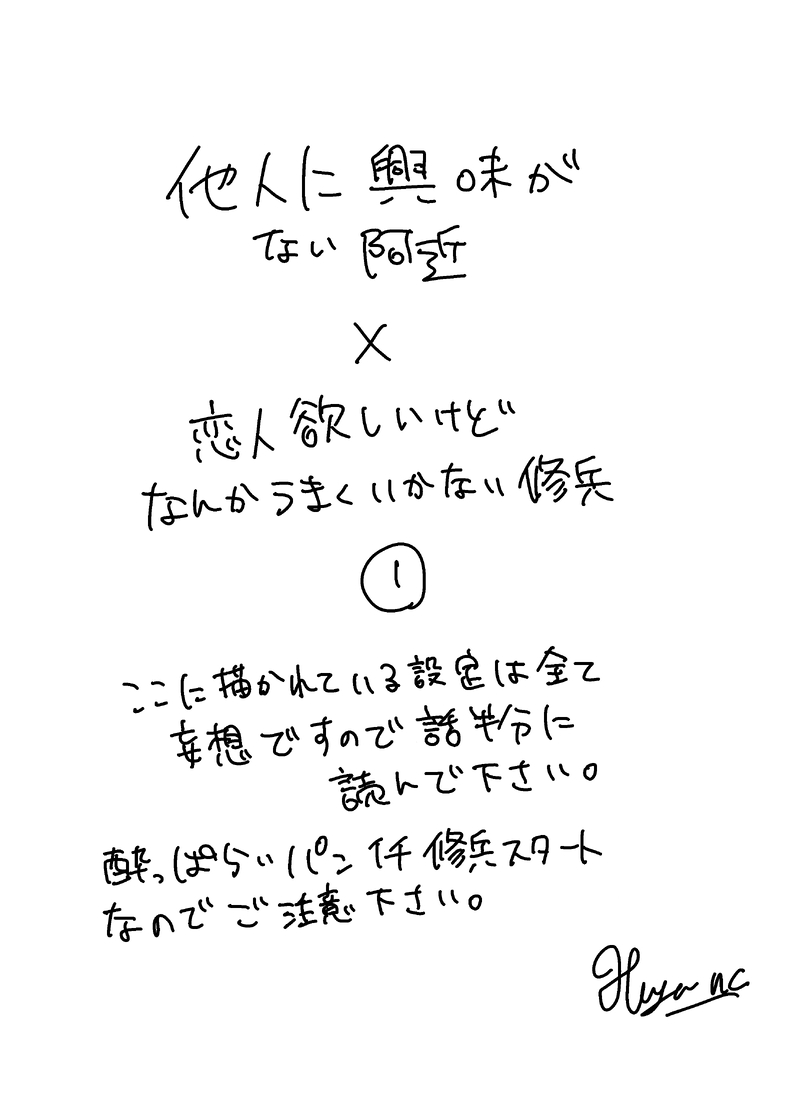 他人に興味が
ない阿近
×
恋人欲しいけど
なんかうまくいかない修兵
①
ここに描かれている設定は全て
妄想ですので話半分に
読んで下さい。
酔っぱらいパンイチ修兵スタート
なのでご注意下さい。